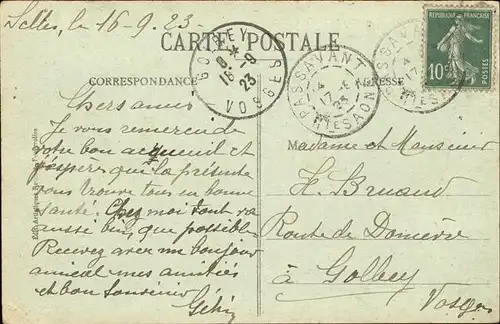 Selles, le 16-9.23-
CARTE POSTALE
CORRESPONDANCE
ADRESSE
GOLBEY
8 *
18-9
23
VOSGES
PASSAVANT
17
23
HTE SAONE
RÉPUBLIQUE FRANÇAISE
10
Chers amis
Je vous remercie de
votre bon acqueuil et
espères que la présente
vous trouve tous en bonne
santé. Chez moi tout va
aussi bien que possible
Recevez avec un bonjour
amical mes amitiés
et bon souvenir
Madame et Monsieur
H. Bruand
Route de Domèvre
à Golbey
Vosges